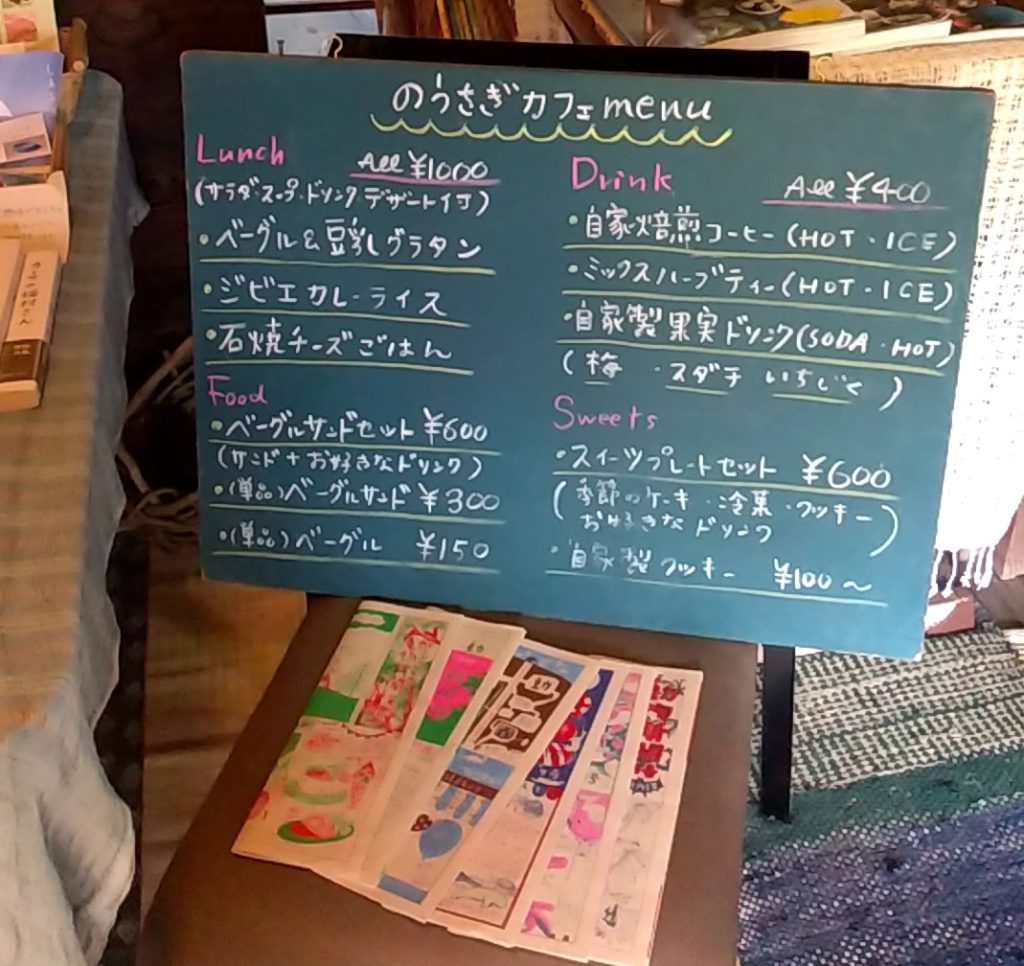 のうさぎカフェmenu
Lunch All ¥1000
(サラダ・スープ・ドリンク デザート付)
・ベーグル&豆乳グラタン
・ジビエカレーライス
・石焼チーズごはん
Food
・ベーグルサンドセット ¥600
(サンド+お好きなドリンク)
・(単品)ベーグルサンド ¥300
・(単品)ベーグル ¥150
Drink All ¥400
・自家焙煎コーヒー(HOT・ICE)
・ミックスハーブティー(HOT・ICE)
・自家製果実ドリンク(SODA・HOT)
(梅 ・スダチ いちじく)
Sweets
・スイーツプレートセット ¥600
(季節のケーキ・冷菓・クッキー
お好きなドリンク)
・自家製クッキー ¥100〜